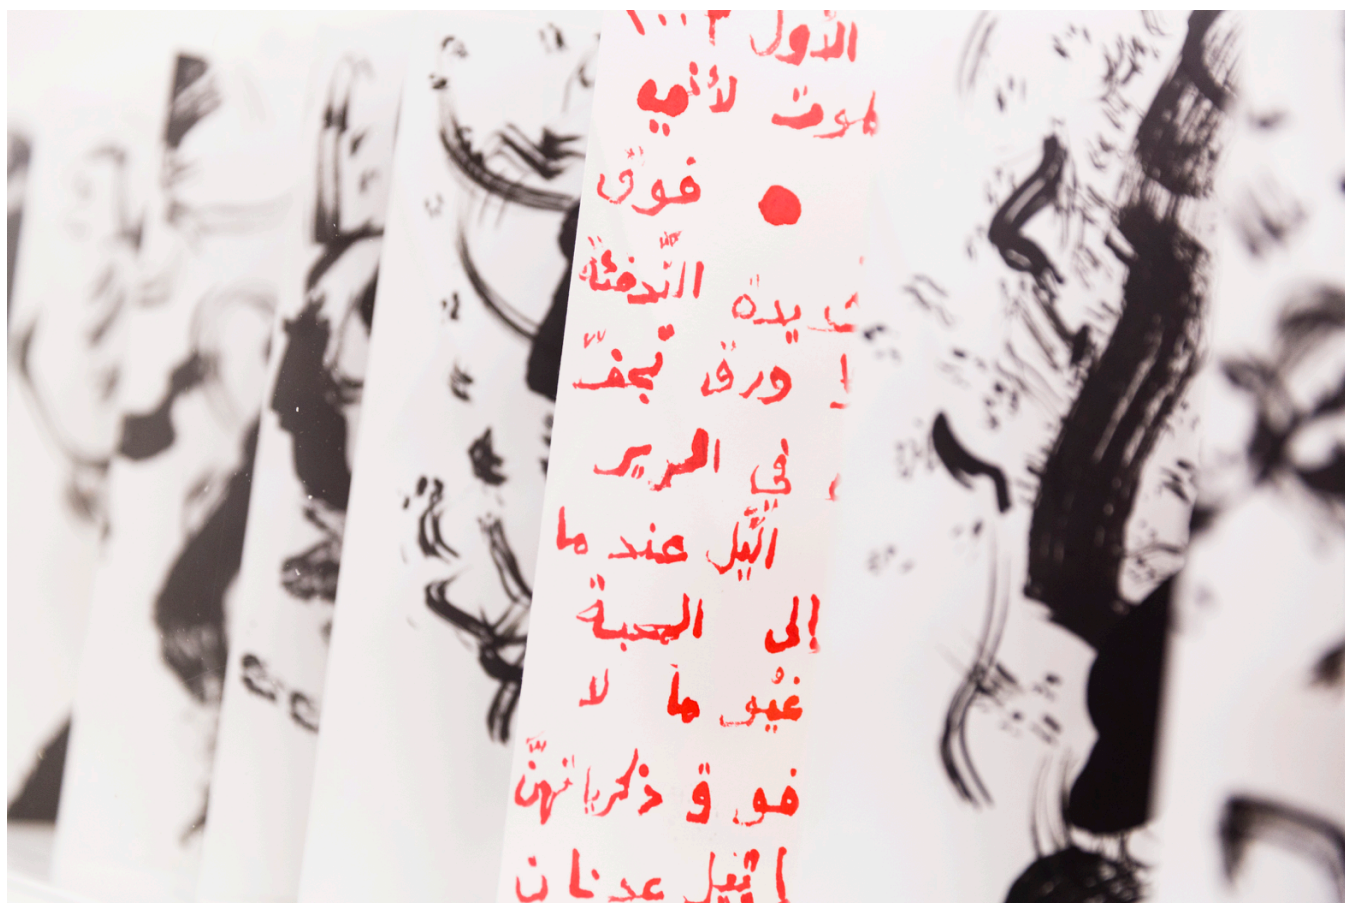 الأول ٢٠٠٣
لأني
فوق
التدفئة
ورق
في الحرير
الليل عند ما
إلى المحبة
غيو ما لا
فوق ذكرياتهنّ
إيتيل عدنان